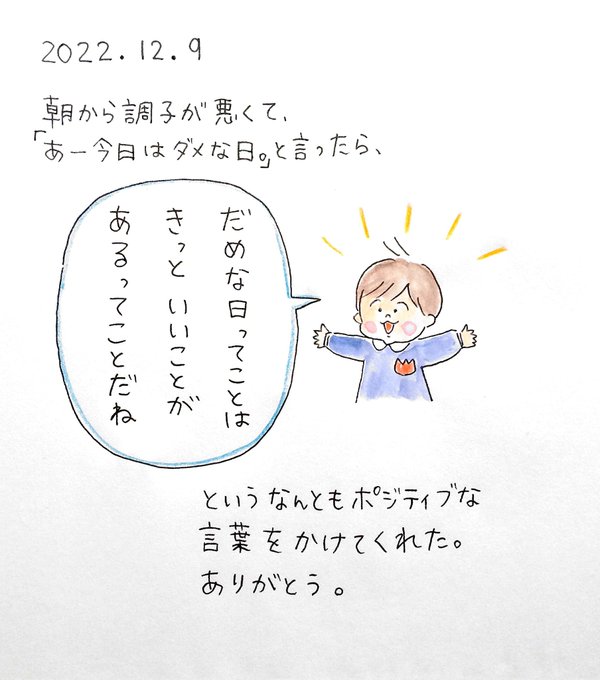 2022.12.9
朝から調子が悪くて、
「あー今日はダメな日。」と言ったら、
だめな日ってことは
きっと いいことが
あるってことだね
というなんともポジティブな
言葉をかけてくれた。
ありがとう。